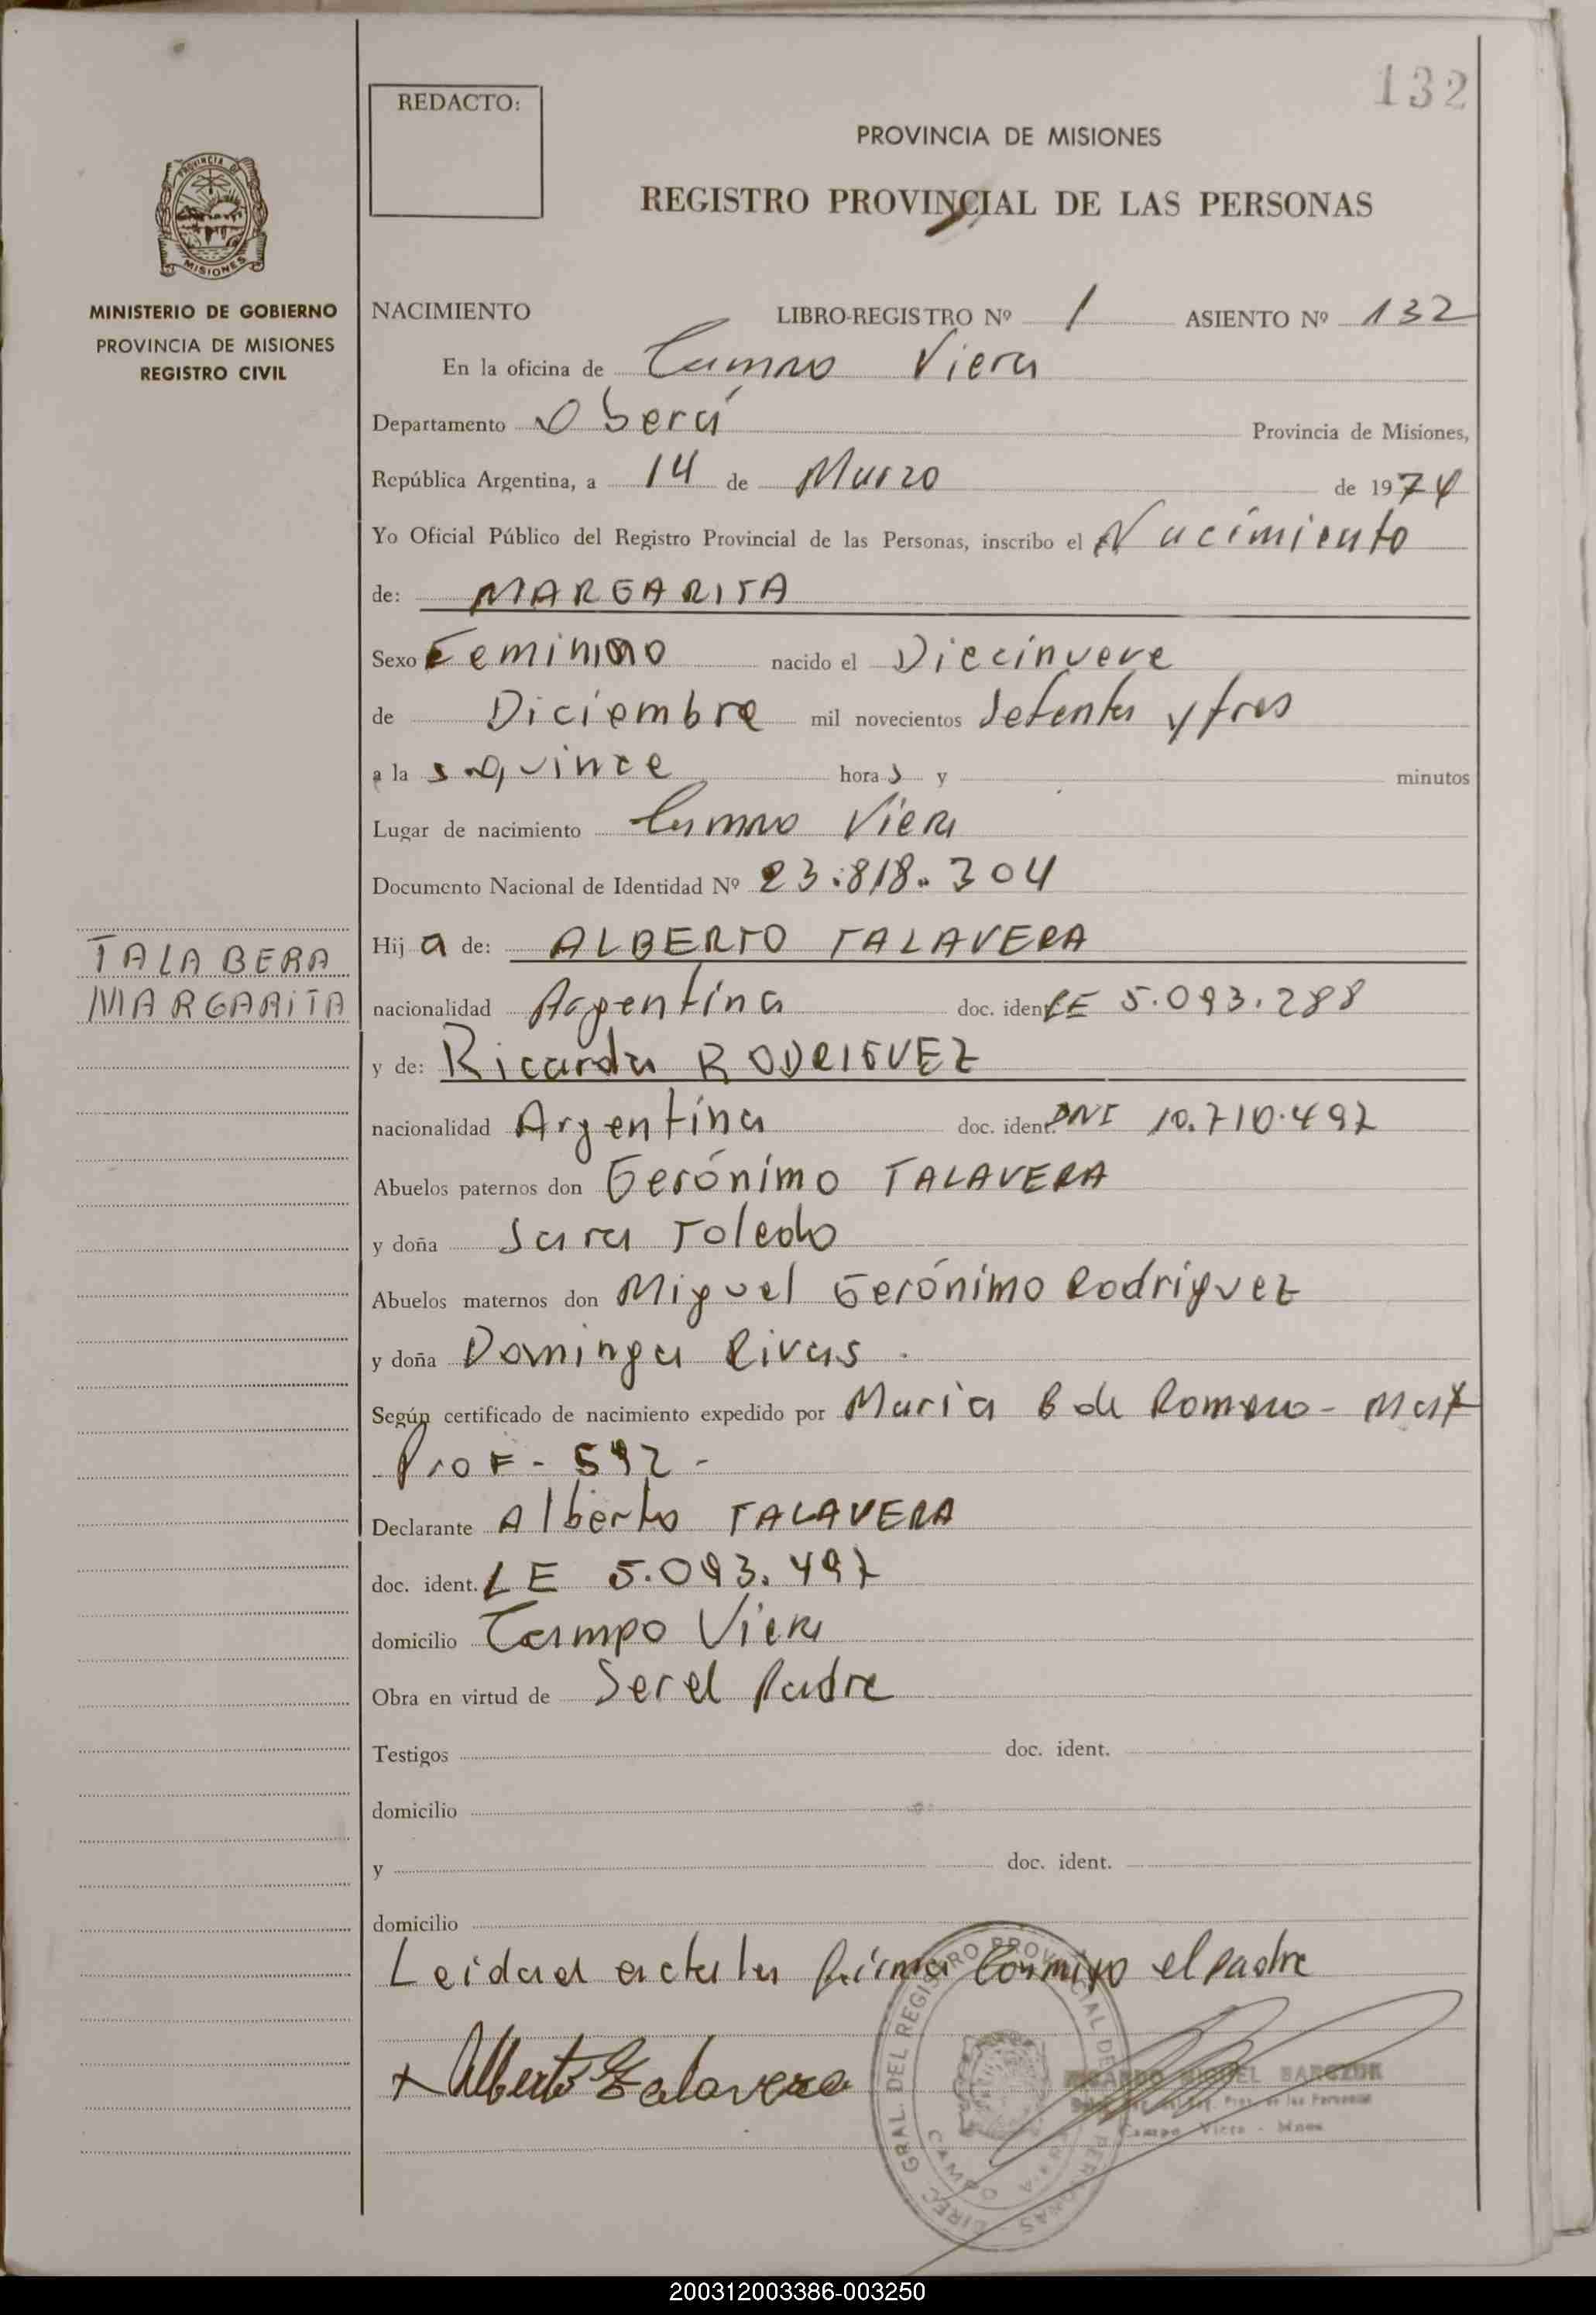 132
REDACTO:
PROVINCIA DE MISIONES
REGISTRO PROVINCIAL DE LAS PERSONAS
PROVINCIA DE
MISIONES
MINISTERIO DE GOBIERNO
PROVINCIA DE MISIONES
REGISTRO CIVIL
NACIMIENTO LIBRO-REGISTRO Nº 1 ASIENTO Nº 132
En la oficina de Campo Viera
Departamento Oberá Provincia de Misiones,
República Argentina, a 14 de Marzo de 1974
Yo Oficial Público del Registro Provincial de las Personas, inscribo el Nacimiento
de: MARGARITA
Sexo Feminino nacido el Diecinueve
de Diciembre mil novecientos Setenta y tres
a la s quince hora s y minutos
Lugar de nacimiento Campo Viera
Documento Nacional de Identidad Nº 23.818.304
TALABERA
MARGARITA
Hij a de: ALBERTO TALAVERA
nacionalidad Argentina doc. ident. LE 5.093.288
y de: Ricarda RODRIGUEZ
nacionalidad Argentina doc. ident. DNI 10.710.497
Abuelos paternos don Gerónimo TALAVERA
y doña Sara Toledo
Abuelos maternos don Miguel Gerónimo Rodríguez
y doña Dominga Rivas.
Según certificado de nacimiento expedido por María B de Romero - Mat
Prof - 592 -
Declarante Alberto TALAVERA
doc. ident. LE 5.093.497
domicilio Campo Viera
Obra en virtud de Ser el Padre
Testigos doc. ident.
domicilio
y doc. ident.
domicilio
Leida el acta la firma Conmigo el Padre
+ Alberto Talavera
DIREC. GRAL. DEL REGISTRO PROVINCIAL DE PERSONAS
CAMPO
MIGUEL
Campo Viera - Mnes
200312003386-003250